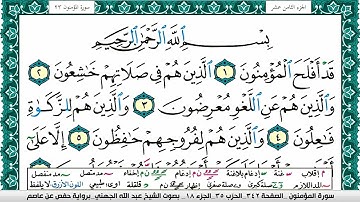 الجزء الثامن عشر سورة المؤمنون ٢٣
بِسْمِ اللَّهِ الرَّحْمَٰنِ الرَّحِيمِ
قَدْ أَفْلَحَ الْمُؤْمِنُونَ ١ الَّذِينَ هُمْ فِي صَلَاتِهِمْ خَاشِعُونَ ٢
وَالَّذِينَ هُمْ عَنِ اللَّغْوِ مُعْرِضُونَ ٣ وَالَّذِينَ هُمْ لِلزَّكَاةِ
فَاعِلُونَ ٤ وَالَّذِينَ هُمْ لِفُرُوجِهِمْ حَافِظُونَ ٥ إِلَّا عَلَىٰ
سورة المؤمنون - الصفحة ٣٤٢ - الحزب ٣٥ - الجزء ١٨ - بصوت الشيخ عبد الله الجهني - برواية حفص عن عاصم